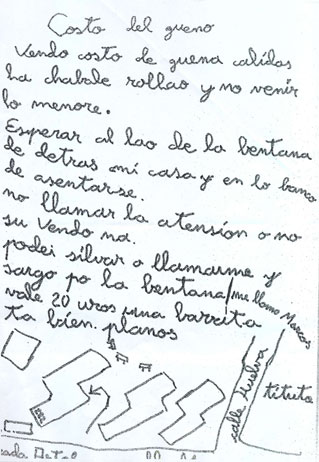 Costo del gueno
Vendo costo de guena calidas
ha chabale rollao y no venir
lo menore.
Esperar al lao de la bentana
de detras mi casa y en lo banco
de asentarse.
no llamar la atension o no
su Vendo na.
podei silvar o llamarme y
sargo po la bentana/me llamo Marcos
vale 20 uros una barrita
ta bien. planos
calle Huelva
tituto